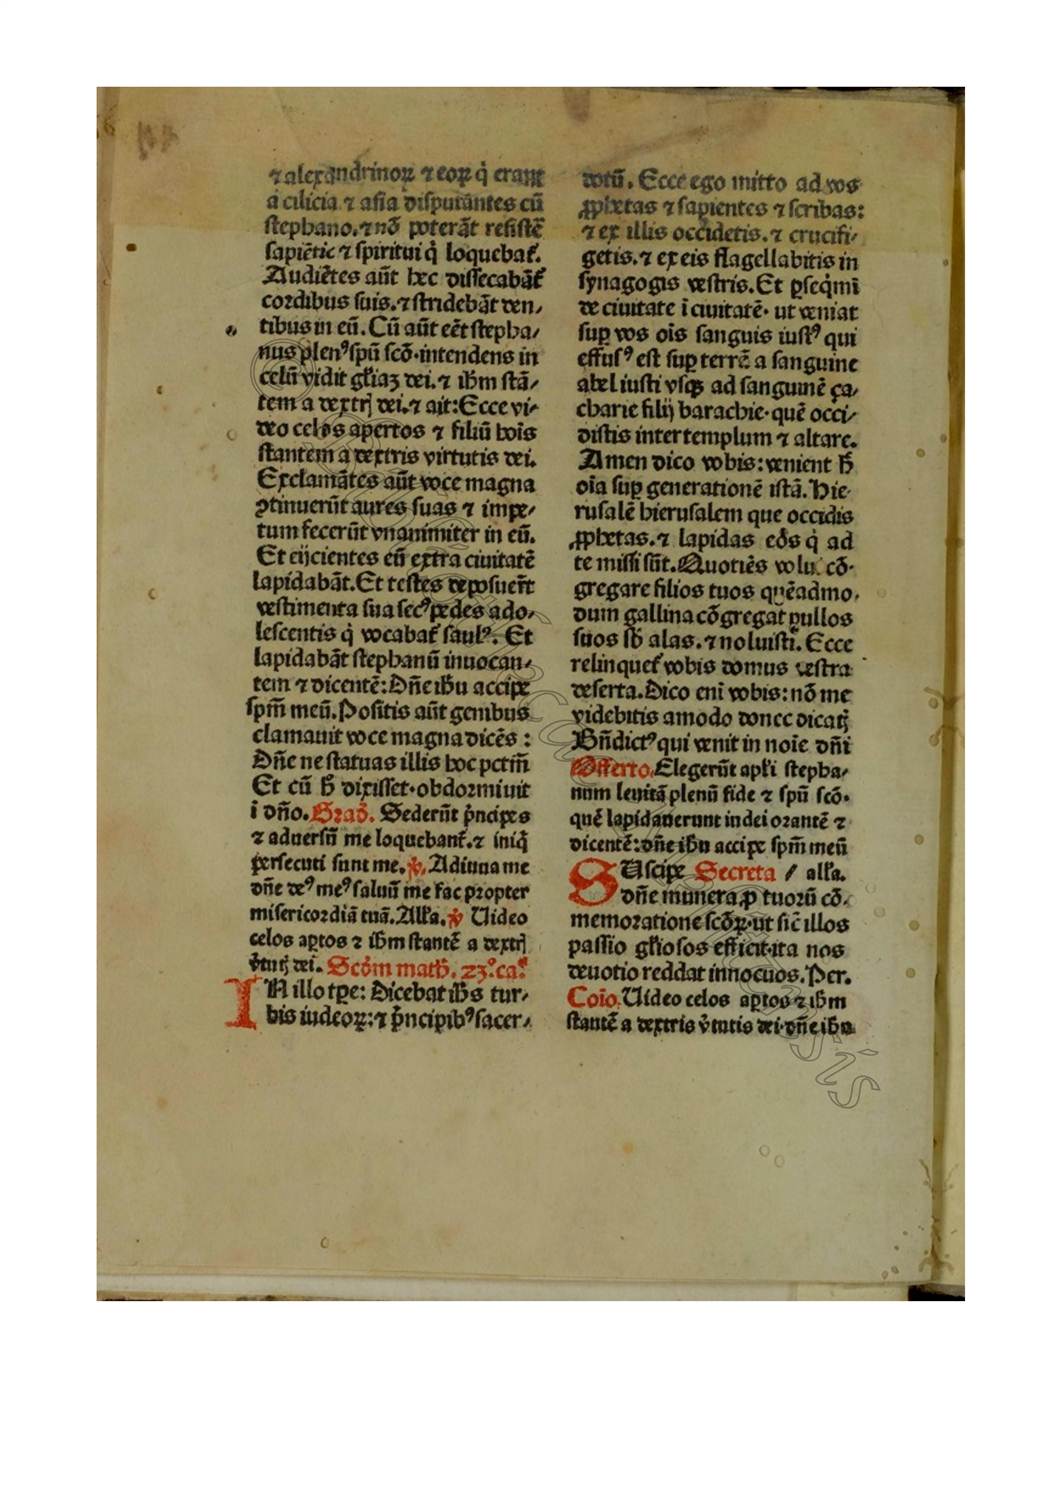 ⁊ alexandrinoꝝ ⁊ eoꝝ q̇ erant
a cilicia ⁊ asia disputantes cū
stephano.⁊ nō poterāt resistē
sapiētie ⁊ spiritui q̇ loquebat᷑.
Audiētes aūt hec dissecabāt᷑
cordibus suis.⁊ stridebāt den/
tibus in eū. Cū aūt eēt stepha/
nus plenꝰ spū scō·intendens in
celū vidit gl̄iaꝫ dei.⁊ ihm̄ stā/
tem a dextrꝭ dei.⁊ ait: Ecce vi/
deo celos apertos ⁊ filiū hoīs
stantem a dextris virtutis dei.
Exclamātes aūt voce magna
ꝯtinuerūt aures suas ⁊ impe/
tum fecerūt vnanimiter in eū.
Et eijcientes eū extra ciuitatē
lapidabāt. Et testes deposuer̄t
vestimenta sua secꝰ pedes ado/
lescentis q̇ vocabat᷑ saulꝰ. Et
lapidabāt stephanū inuocan/
tem ⁊ dicentē: Dn̄e ihū accipe
spm̄ meū. Positis aūt genibus
clamauit voce magna dicēs :
Dn̄e ne statuas illis hoc pctm̄
Et cū h̄ dixisset·obdormiuit
ī dn̄o. Grad̄. Sederūt pn̄cipes
⁊ aduersū me loquebant᷑.⁊ iniq̇
persecuti sunt me. ℣. Adiuua me
dn̄e deꝰ meꝰ saluū me fac propter
misericordiā tuā. All̄a. ℣ Uideo
celos aꝑtos ⁊ ihm̄ stantē a dextrꝭ
v̄tutꝭ dei. Scd̄m math̄. 23ꝰ. caꝰ
IN illo tꝑe: Dicebat ihs̄ tur/
bis iudeoꝝ: ⁊ pn̄cipibꝰ sacer/
dotū. Ecce ego mitto ad vos
ꝓphetas ⁊ sapientes ⁊ scribas:
⁊ ex illis occidetis.⁊ crucifi/
getis.⁊ ex eis flagellabitis in
synagogis vestris. Et ꝑseq̇mī
de ciuitate ī ciuitatē· ut veniat
suꝑ vos oīs sanguis iustꝰ qui
effusꝰ est suꝑ terrē a sanguine
abel iusti vsqꝫ ad sanguinē ça/
charie filij barachie·quē occi/
distis inter templum ⁊ altare.
Amen dico vobis: venient h̄
oīa suꝑ generationē istā. Hie
rusalē hierusalem que occidis
ꝓphetas.⁊ lapidas eos q̇ ad
te missi sūt. Quotiēs volu cō·
gregare filios tuos quēadmo/
dum gallina cōgregat pullos
suos sb̄ alas.⁊ noluisti. Ecce
relinquet᷑ vobis domus vestra
deserta. Dico eni vobis: nō me
videbitis amodo donec dicatꝭ
Bn̄dictꝰ qui venit in noīe dn̄i
Offerto. Elegerūt apl̄i stepha/
num leuitā plenū fide ⁊ spū scō·
quē lapidauerunt iudei orantē ⁊
dicentē: dn̄e ihū accipe spm̄ meū
SUscipe Secreta / all̄a.
dn̄e munera ꝓ tuorū cō/
memoratione scōꝝ·ut sic̄ illos
passio gl̄iosos efficit·ita nos
deuotio reddat innocuos. Per.
Coīo. Uideo celos aꝑtos ⁊ ihm̄
stantē a dextris v̄tutis dei·dn̄e ihū